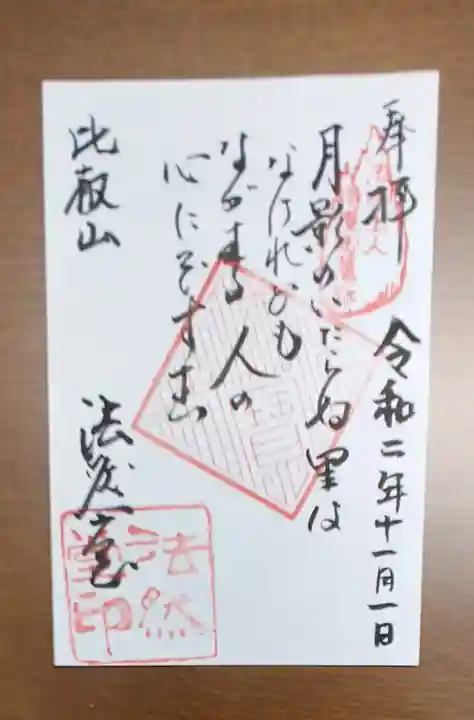 奉拝
令和二年十一月一日
月影のいたらぬ里は
なけれども
ながむる人の
心にぞすむ
比叡山
法然堂
法然
堂印